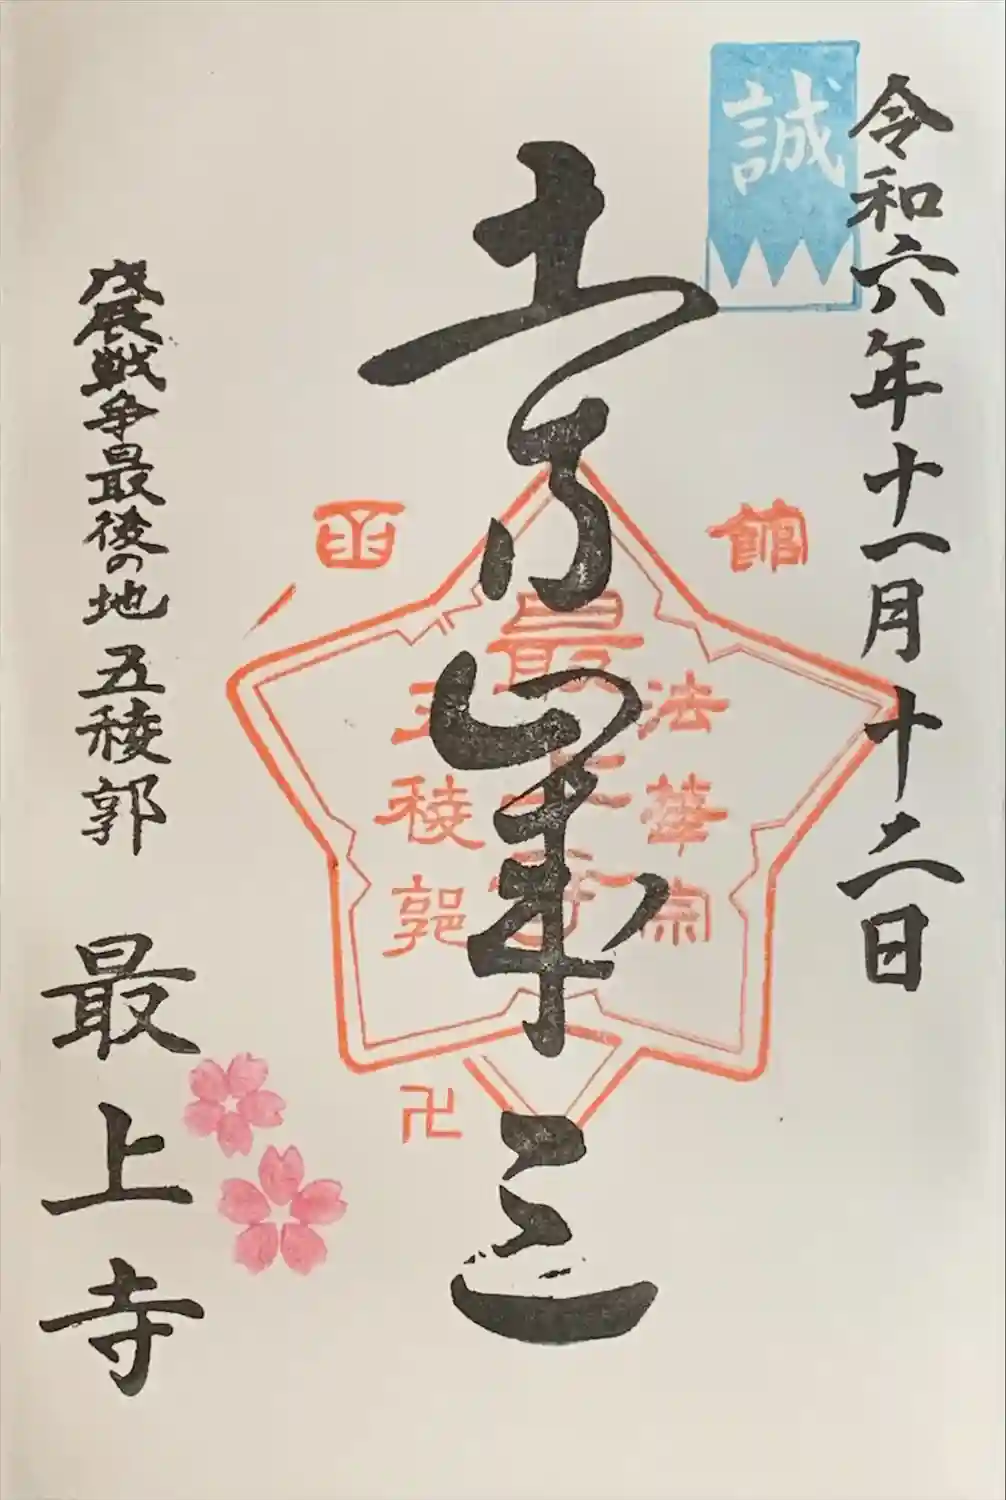 令和六年十一月十二日
誠
土方歳三
函館
法華宗
最上寺
五稜郭
卍
戊辰戦争最後の地 五稜郭 最上寺